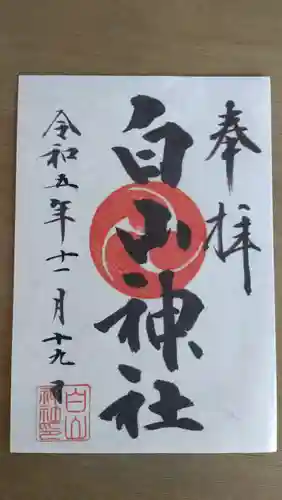 奉拝
白山神社
令和五年十一月十九日
白山
神社印